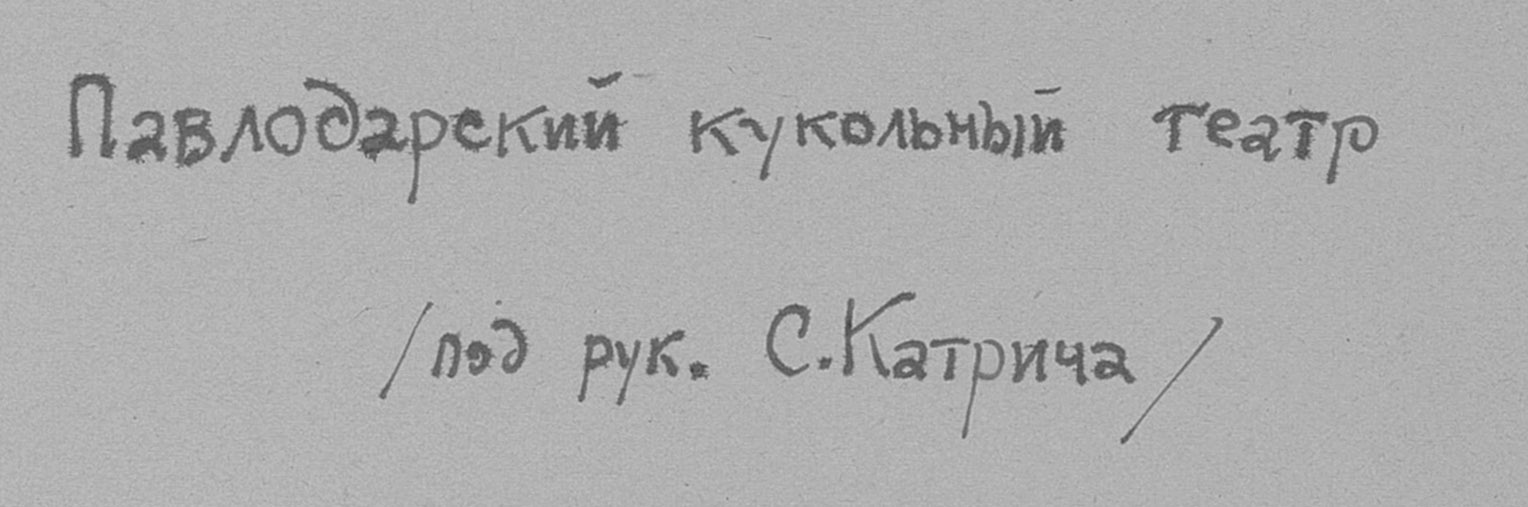 Павлодарский кукольный театр
/под рук. С.Катрича/